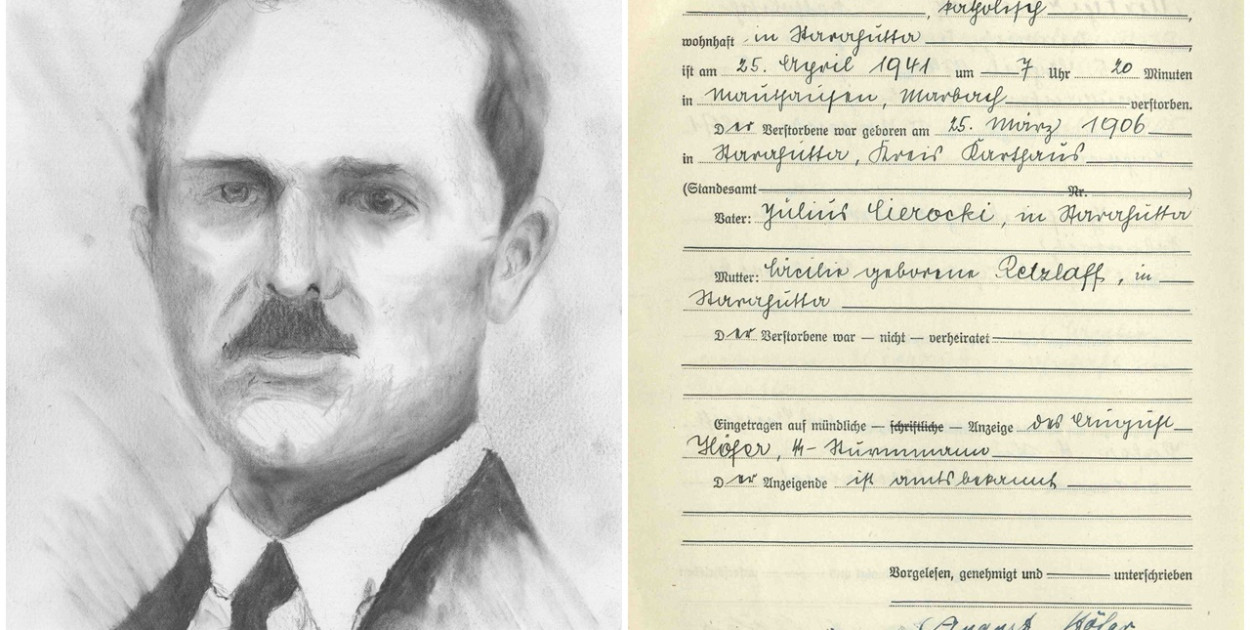 , katholisch ,
wohnhaft in Starahutta
ist am 25. April 1941 um 7 Uhr 20 Minuten
in Mauthausen, Marbach verstorben.
Der Verstorbene war geboren am 25. März 1906
in Starahutta, Kreis Karthaus
(Standesamt Nr. )
Vater: Julius Cierocki, in Starahutta
Mutter: Cäcilie geborene Retzlaff, in
Starahutta
Der Verstorbene war — nicht — verheiratet
Eingetragen auf mündliche — schriftliche — Anzeige des August
Höfer, ᛋᛋ-Sturmmann
Der Anzeigende ist amtsbekannt
Vorgelesen, genehmigt und unterschrieben
August Höfer